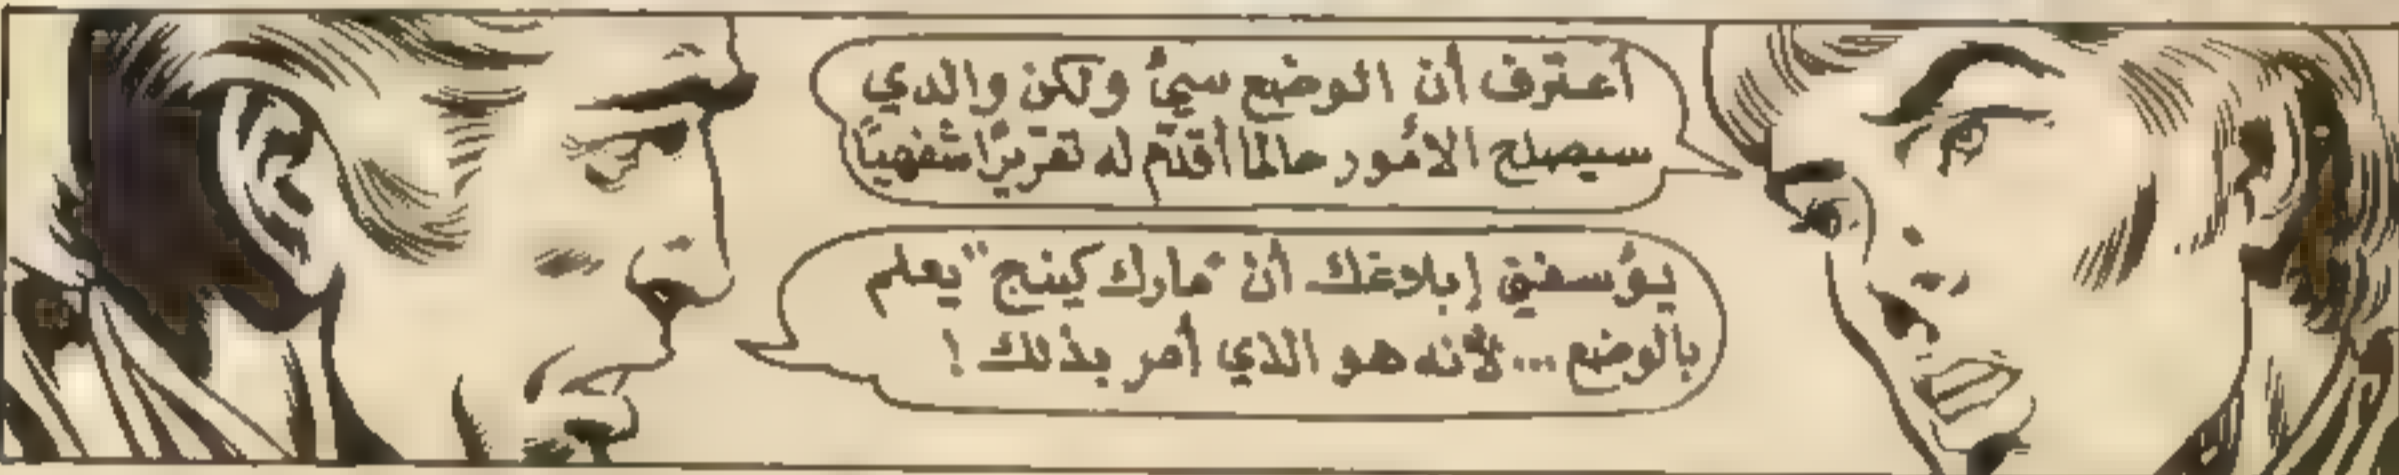 أعترف أن الوضع سيئ ولكن والدي
سيصلح الأمور حالما أقدّم له تقريرًا شفهيًا
يؤسفني إبلاغك أن "مارك كينج" يعلم
بالوضع ... لأنه هو الذي أمر بذلك !